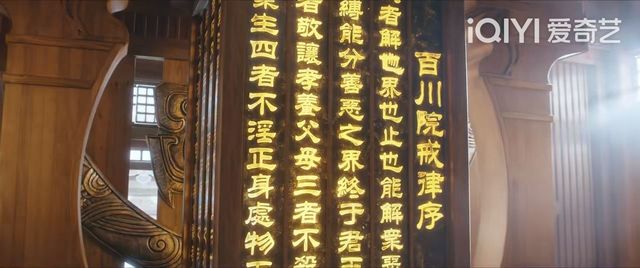 iQIYI 爱奇艺
百川院戒律序
者解也界也止也能解衆惡
縛能分善惡之界終于君
者敬讓孝養父母三者不殺
生四者不淫正身處物